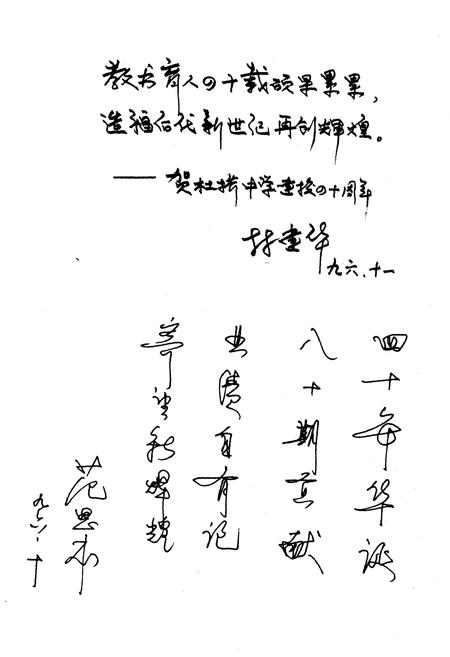 教书育人四十载硕果累累，
造福后代新世纪再创辉煌。
——贺杜桥中学建校四十周年
林建华
九六.十一
四十年华诞
八十期贡献
业绩自有记
寄望新辉煌
范思
九六.十